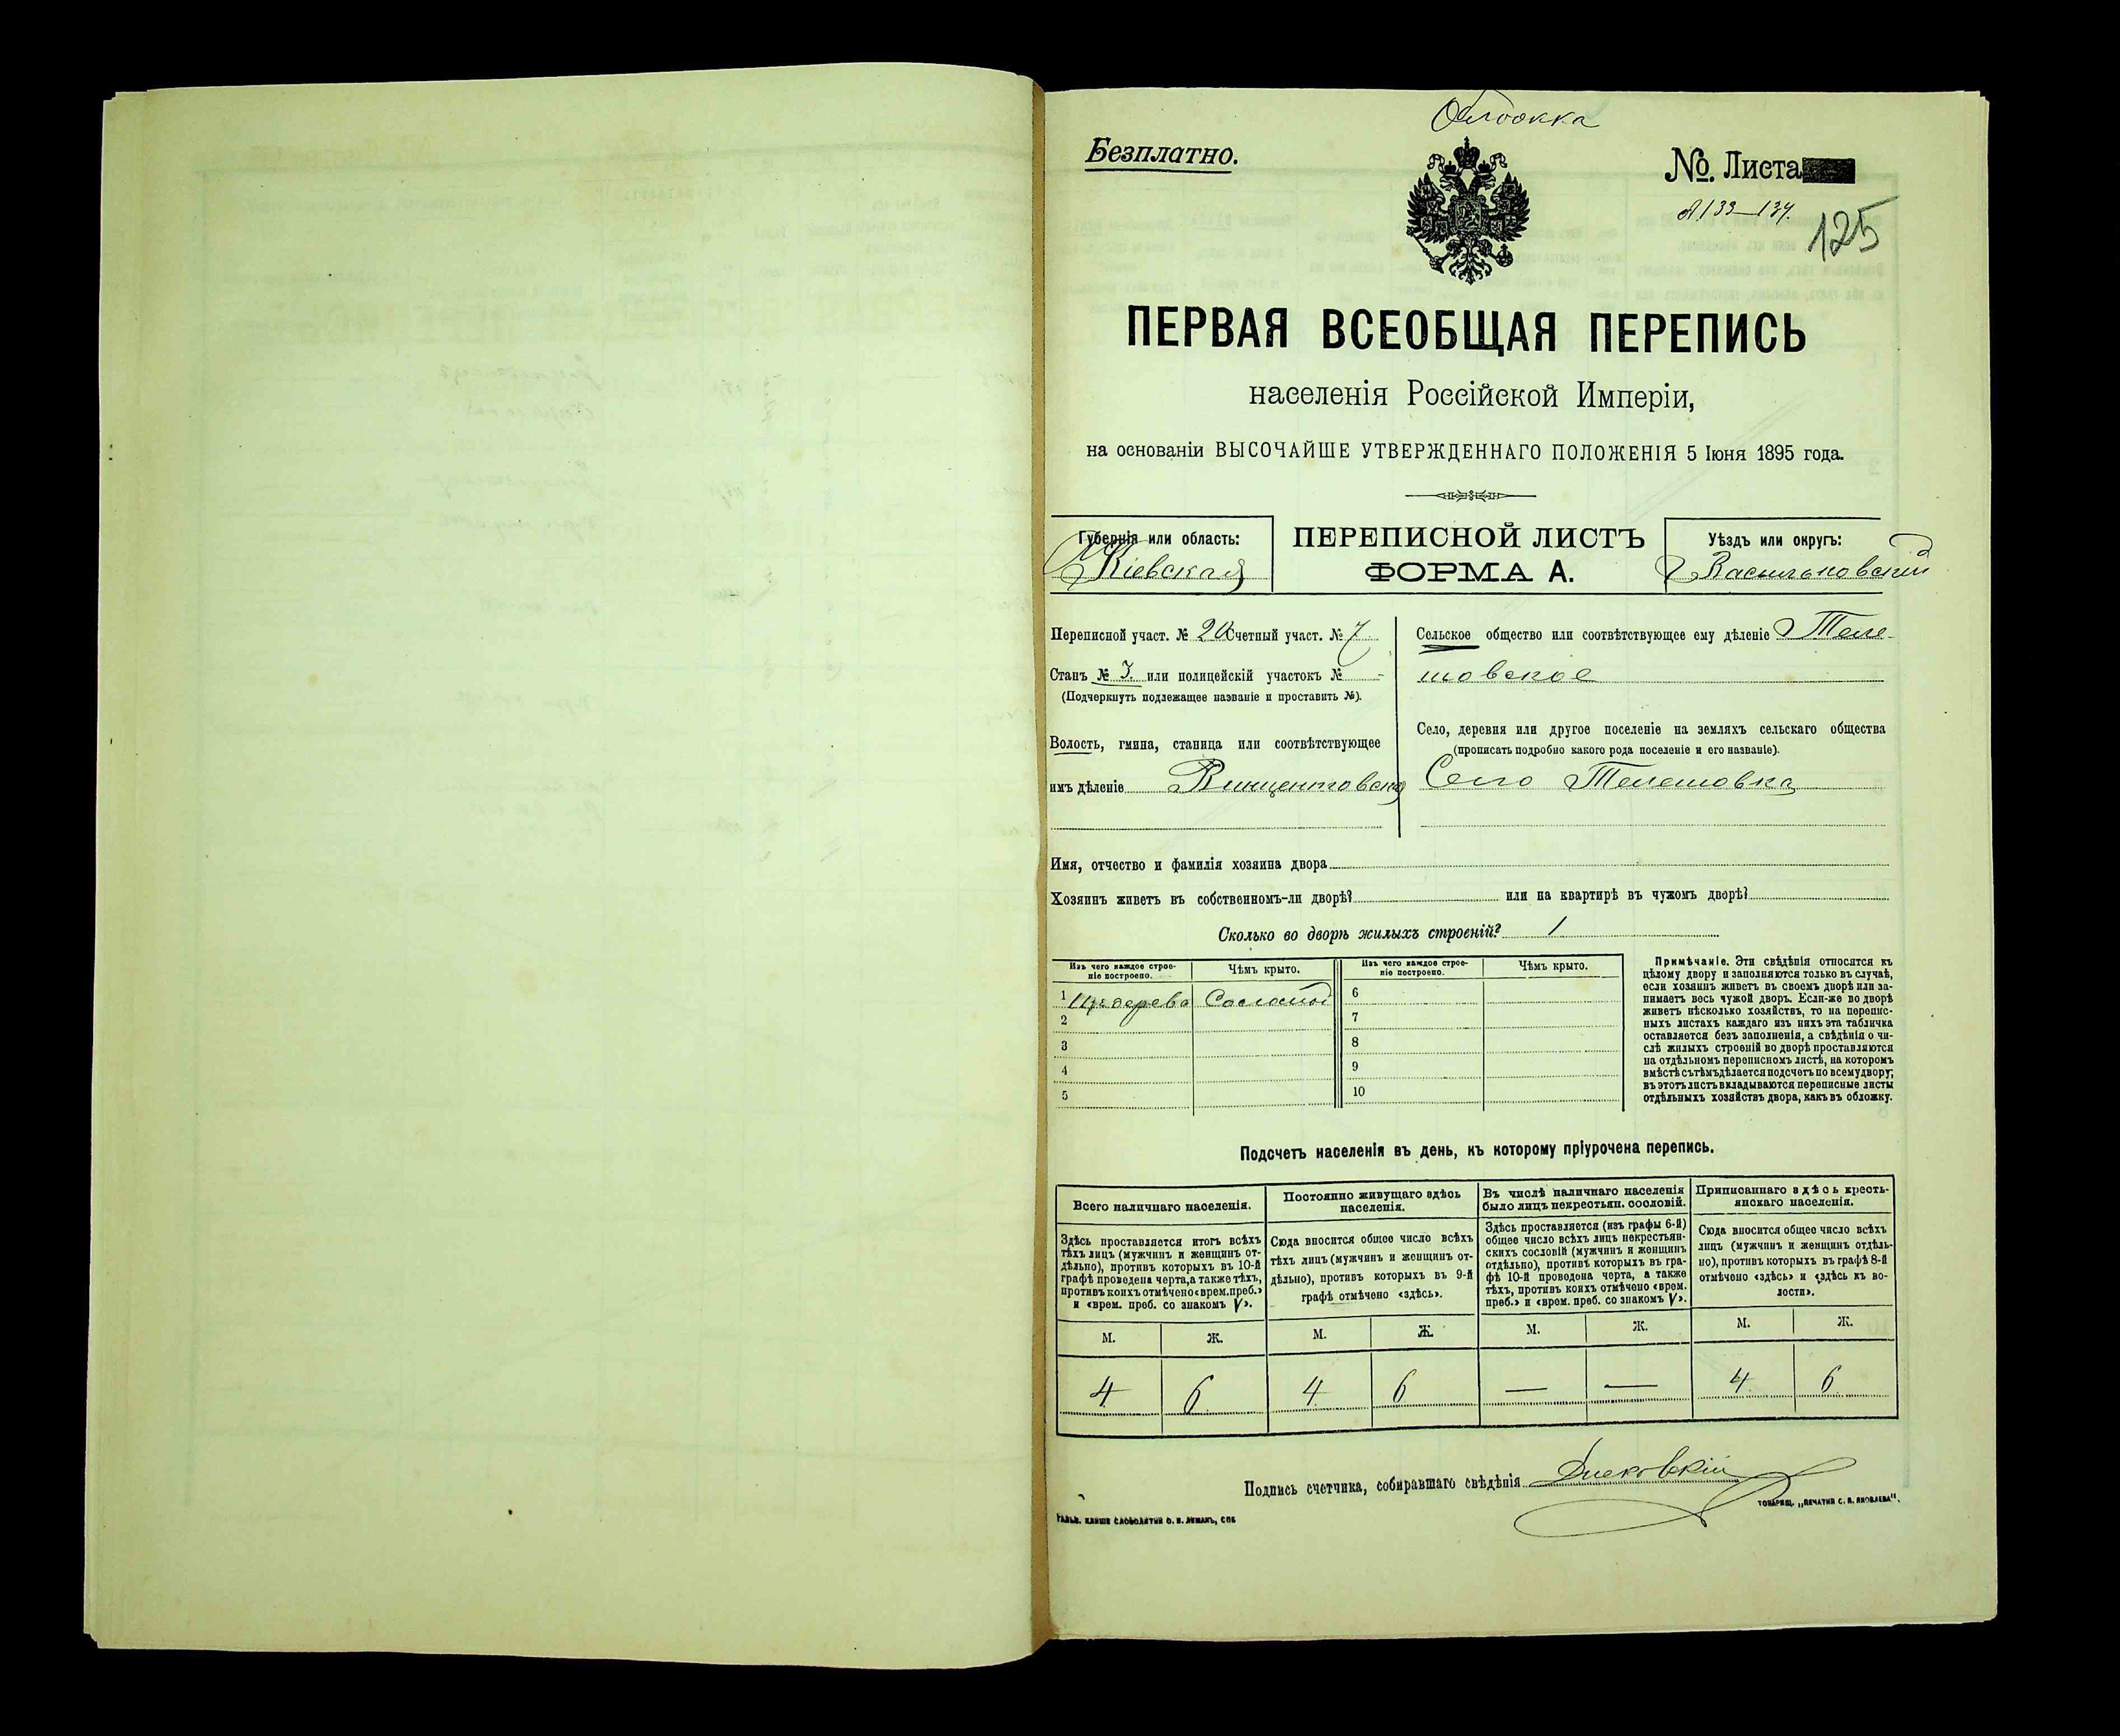 Обложка
Безплатно.
No. Листа
№ 133—134.
125
ПЕРВАЯ ВСЕОБЩАЯ ПЕРЕПИСЬ
населенія Россійской Имперіи,
на основаніи ВЫСОЧАЙШЕ УТВЕРЖДЕННАГО ПОЛОЖЕНІЯ 5 Іюня 1895 года.
Губернія или область:
Кіевская
ПЕРЕПИСНОЙ ЛИСТЪ
ФОРМА А.
Уѣздъ или округъ:
Васильковскій
Переписной участ. № 20 Счетный участ. № 7
Станъ № 3. или полицейскій участокъ № -
(Подчеркнуть подлежащее названіе и проставить №).
Волость, гмина, станица или соотвѣтствующее
имъ дѣленіе Винцентовская
Сельское общество или соотвѣтствующее ему дѣленіе Теле-
шовское
Село, деревня или другое поселеніе на земляхъ сельскаго общества
(прописать подробно какого рода поселеніе и его названіе).
Село Телешовка
Имя, отчество и фамилія хозяина двора
Хозяинъ живетъ въ собственномъ-ли дворѣ? или на квартирѣ въ чужомъ дворѣ?
Сколько во дворѣ жилыхъ строеній? 1
Изъ чего каждое строе-
ніе построено.
Чѣмъ крыто.
Изъ чего каждое строе-
ніе построено.
Чѣмъ крыто.
1 Изъ дерева Соломой
2
3
4
5
6
7
8
9
10
Примѣчаніе. Эти свѣдѣнія относятся къ
цѣлому двору и заполняются только въ случаѣ,
если хозяинъ живетъ въ своемъ дворѣ или за-
нимаетъ весь чужой дворъ. Если-же во дворѣ
живетъ нѣсколько хозяйствъ, то на перепис-
ныхъ листахъ каждаго изъ нихъ эта табличка
оставляется безъ заполненія, а свѣдѣнія о чи-
слѣ жилыхъ строеній во дворѣ проставляются
на отдѣльномъ переписномъ листѣ, на которомъ
вмѣстѣ съ тѣмъ дѣлается подсчетъ по всему двору;
въ этотъ листъ вкладываются переписные листы
отдѣльныхъ хозяйствъ двора, какъ въ обложку.
Подсчетъ населенія въ день, къ которому пріурочена перепись.
Всего наличнаго населенія.
Здѣсь проставляется итогъ всѣхъ
тѣхъ лицъ (мужчинъ и женщинъ от-
дѣльно), противъ которыхъ въ 10-й
графѣ проведена черта, а также тѣхъ,
противъ коихъ отмѣчено «врем. преб.»
и «врем. преб. со знакомъ V».
Постоянно живущаго здѣсь
населенія.
Сюда вносится общее число всѣхъ
тѣхъ лицъ (мужчинъ и женщинъ от-
дѣльно), противъ которыхъ въ 9-й
графѣ отмѣчено «здѣсь».
Въ числѣ наличнаго населенія
было лицъ некрестьян. сословій.
Здѣсь проставляется (изъ графы 6-й)
общее число всѣхъ лицъ некрестьян-
скихъ сословій (мужчинъ и женщинъ
отдѣльно), противъ которыхъ въ гра-
фѣ 10-й проведена черта, а также
тѣхъ, противъ коихъ отмѣчено «врем.
преб.» и «врем. преб. со знакомъ V».
Приписаннаго здѣсь кресть-
янскаго населенія.
Сюда вносится общее число всѣхъ
лицъ (мужчинъ и женщинъ отдѣль-
но), противъ которыхъ въ графѣ 8-й
отмѣчено «здѣсь» и «здѣсь къ во-
лости».
М. Ж. М. Ж. М. Ж. М. Ж.
4 6 4 6 — — 4 6
Подпись счетчика, собиравшаго свѣдѣнія
ТОВАРИЩ. „ПЕЧАТНИ С. П. ЯКОВЛЕВА".
ГАЛЬВ. КЛИШЕ СЛОВОЛИТНИ О. И. ЛЕМАНЪ, СПБ